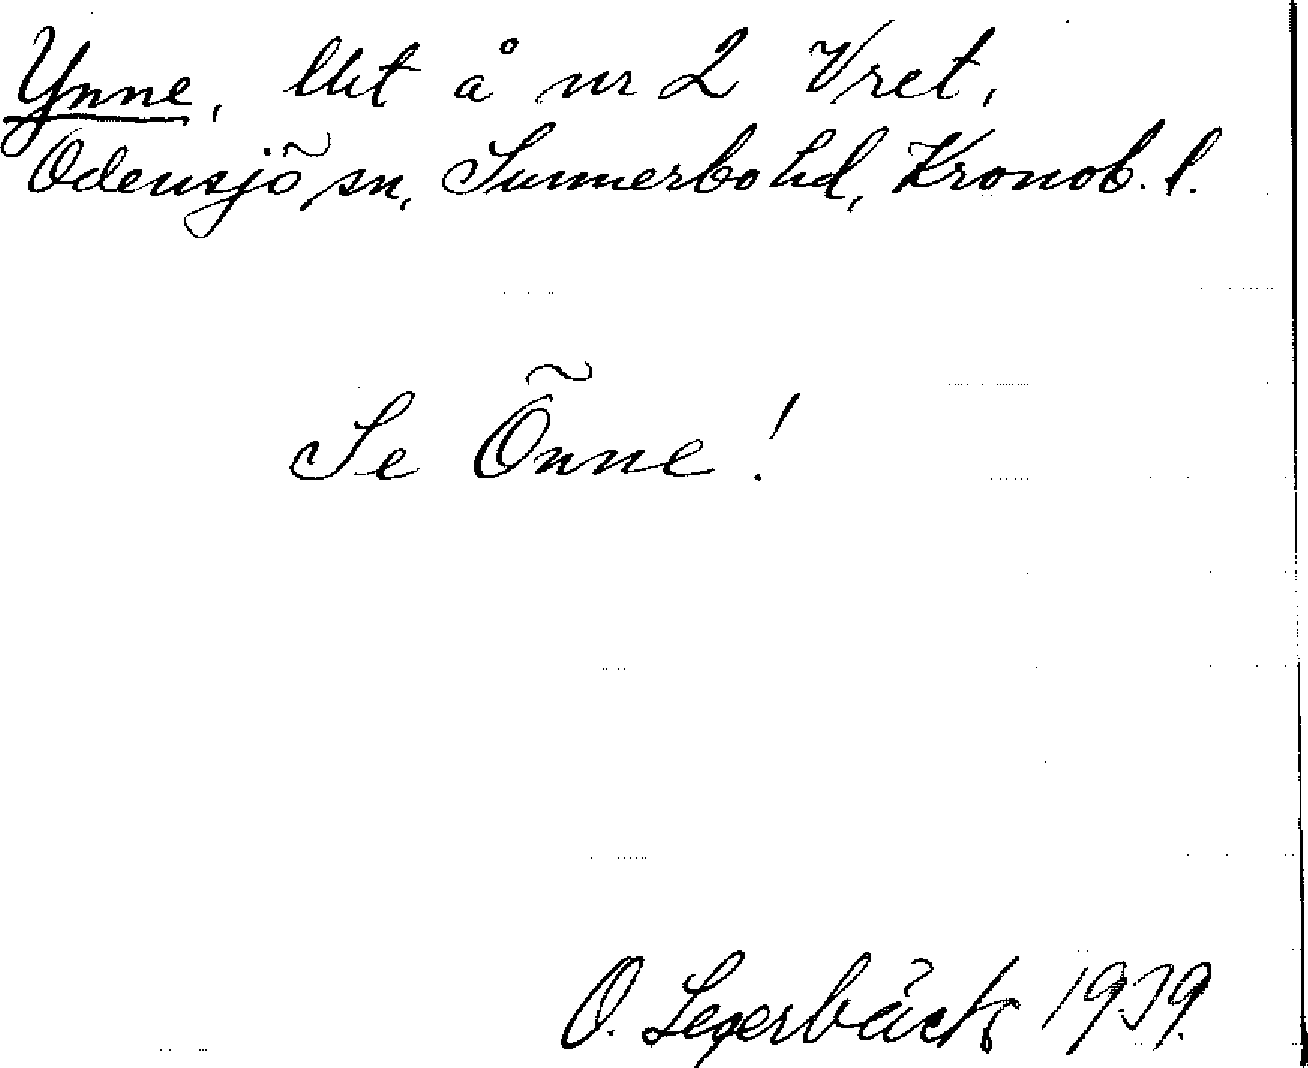 Ynne, lht å nr 2 Vret,
Odensjö sn, Sunnerbo hd, Kronob. l.
Se Önne!
O. Segerbäck 1939.